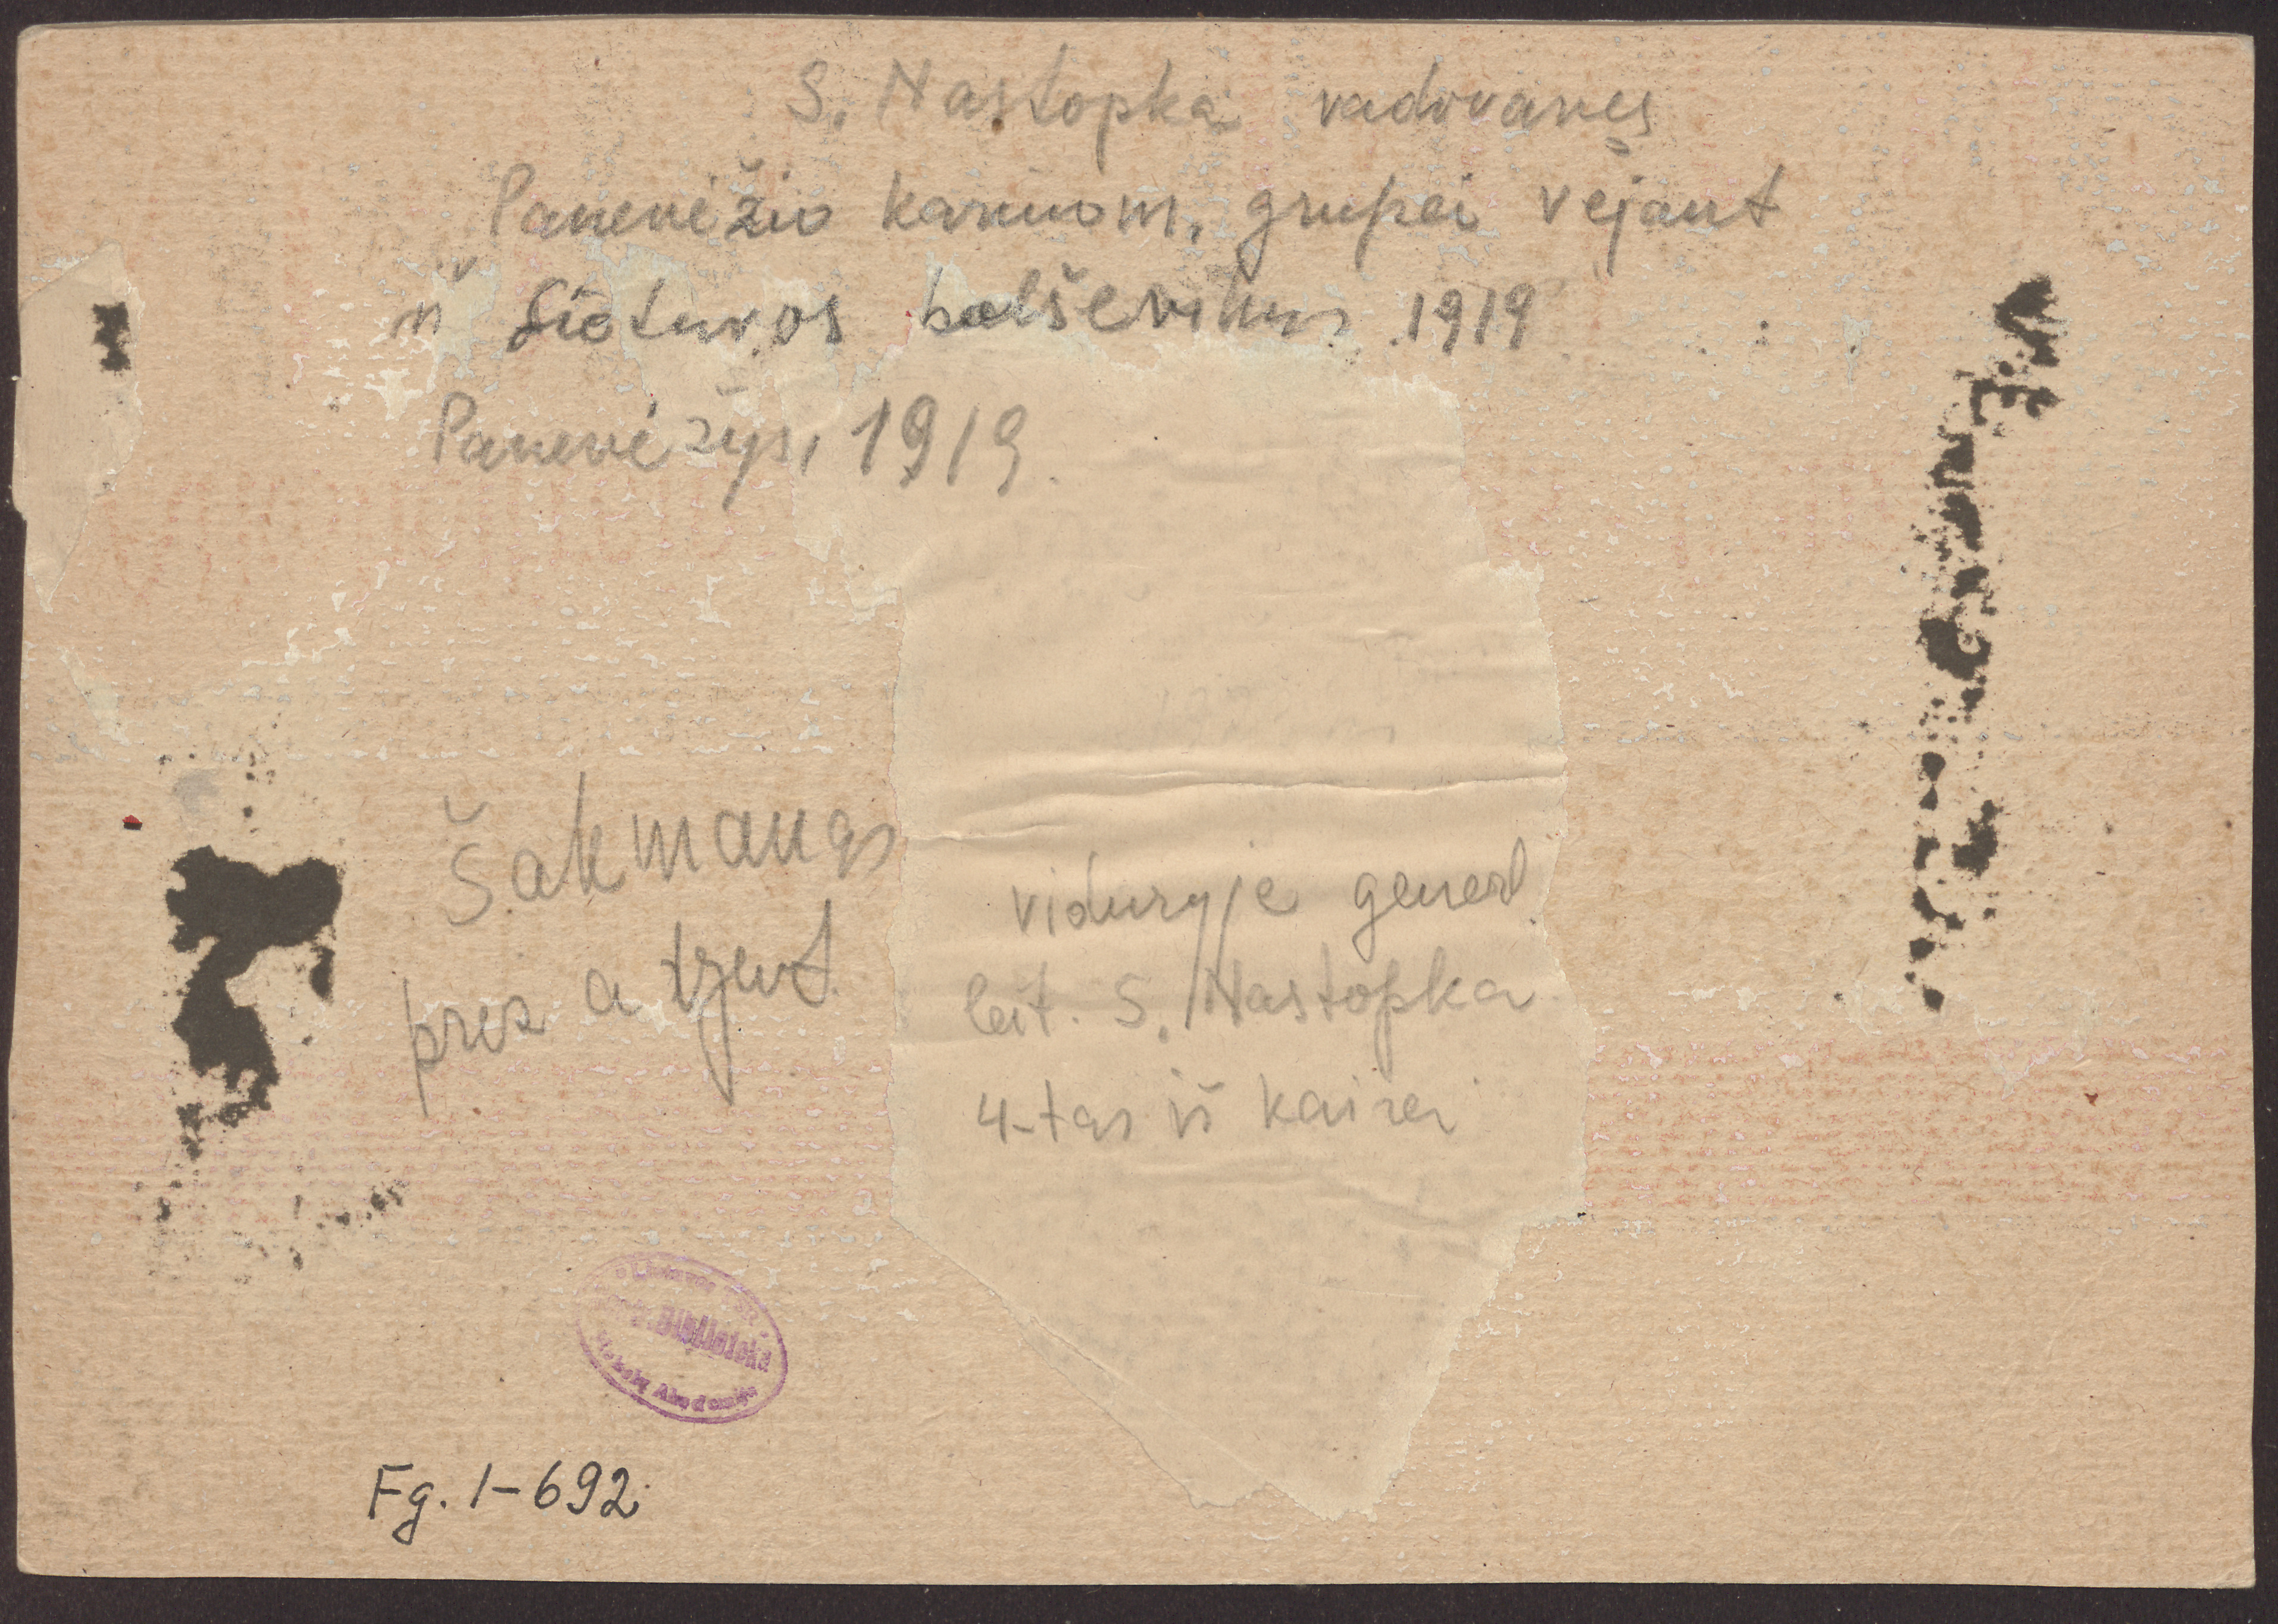 S. Nastopka vadovavęs
Panevėžio kariuom. grupei vejant
iš Lietuvos bolševikus 1919
Panevėžys, 1919.
Šakmaugs
prez a tzevt.
viduryje general.
leit. S. Nastopka
4-tas iš kairėi
Biblioteka
Mokslų Akademija
Fg. 1-692